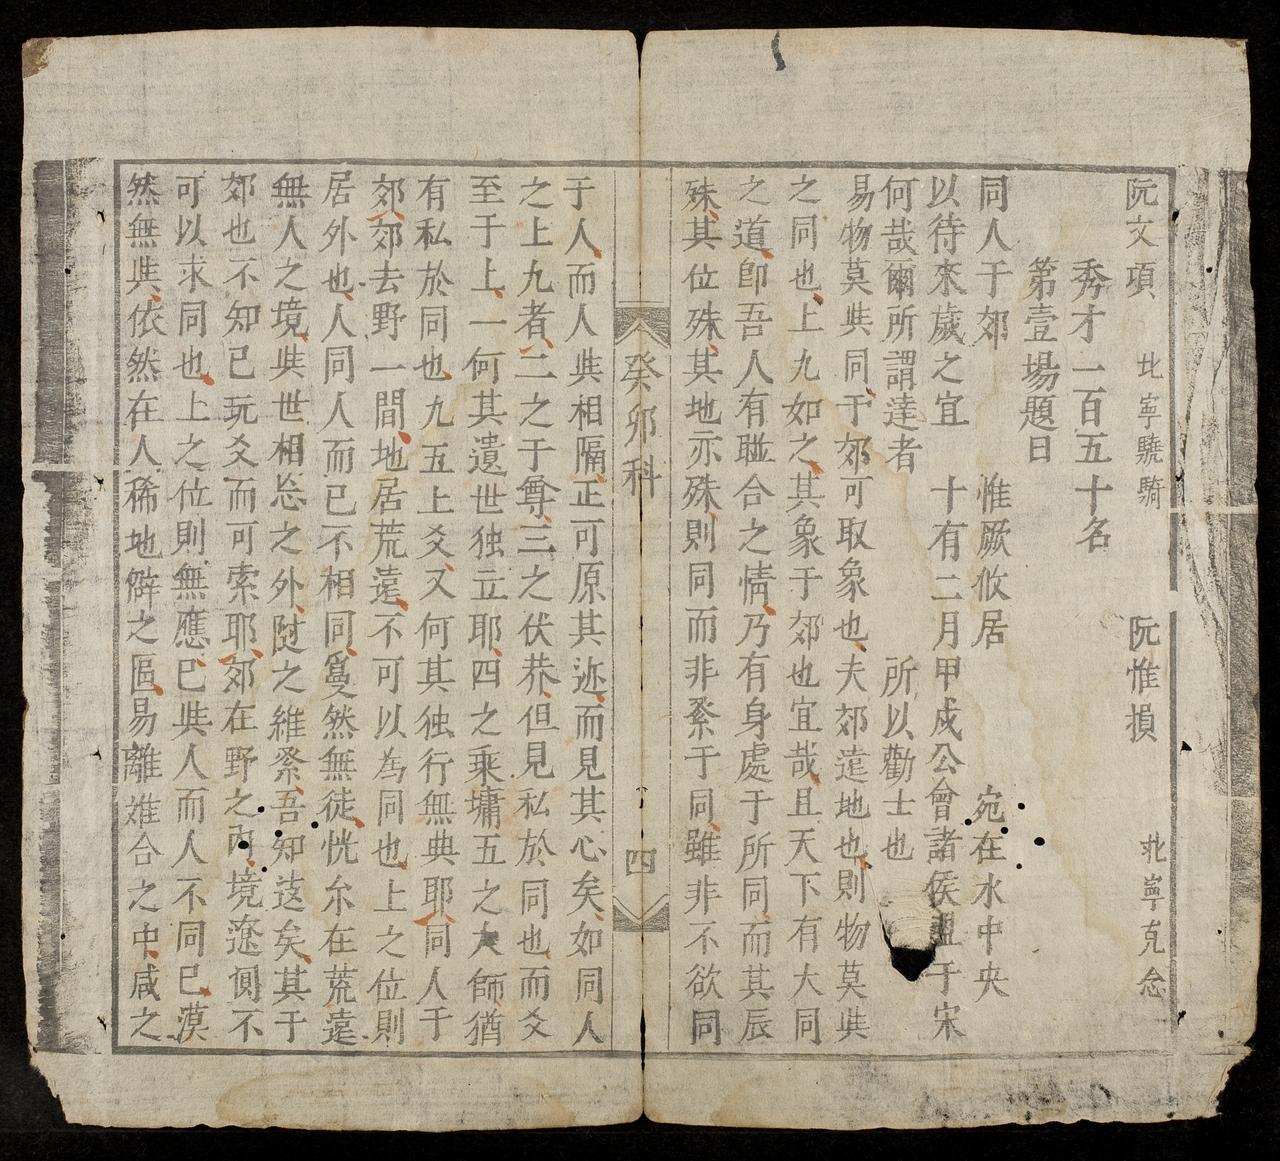 阮文項 北寧驍騎 阮惟損 北寧克念
秀才一百五十名
第壹場題目
同人于郊 惟厥攸居 宛在水中央
以待來歲之宜 十有二月甲戌公會諸侯盟于宋
何哉爾所謂達者 所以勸士也
易物莫與同于郊可取象也夫郊遠地也則物莫與
之同也上九如之其象于郊也宜哉且天下有大同
之道卽吾人有聯合之情乃有身處于所同而其辰
殊其位殊其地亦殊則同而非係于同雖非不欲同
癸卯科 四
于人而人與相隔正可原其迹而見其心矣如同人
之上九者二之于尊三之伏莽但見私於同也而爻
至于上一何其遺世独立耶四之乘墉五之大師猶
有私於同也九五上爻又何其独行無與耶同人于
郊郊去野一間地居荒遠不可以為同也上之位則
居外也人同人而已不相同夐然無徒恍尔在荒遠
無人之境與世相忘之外附之維係吾知迭矣其于
郊也不知已玩爻而可索耶郊在野之內境遼側不
可以求同也上之位則無應已與人而人不同已漠
然無與依然在人稀地僻之區易離難合之中咸之